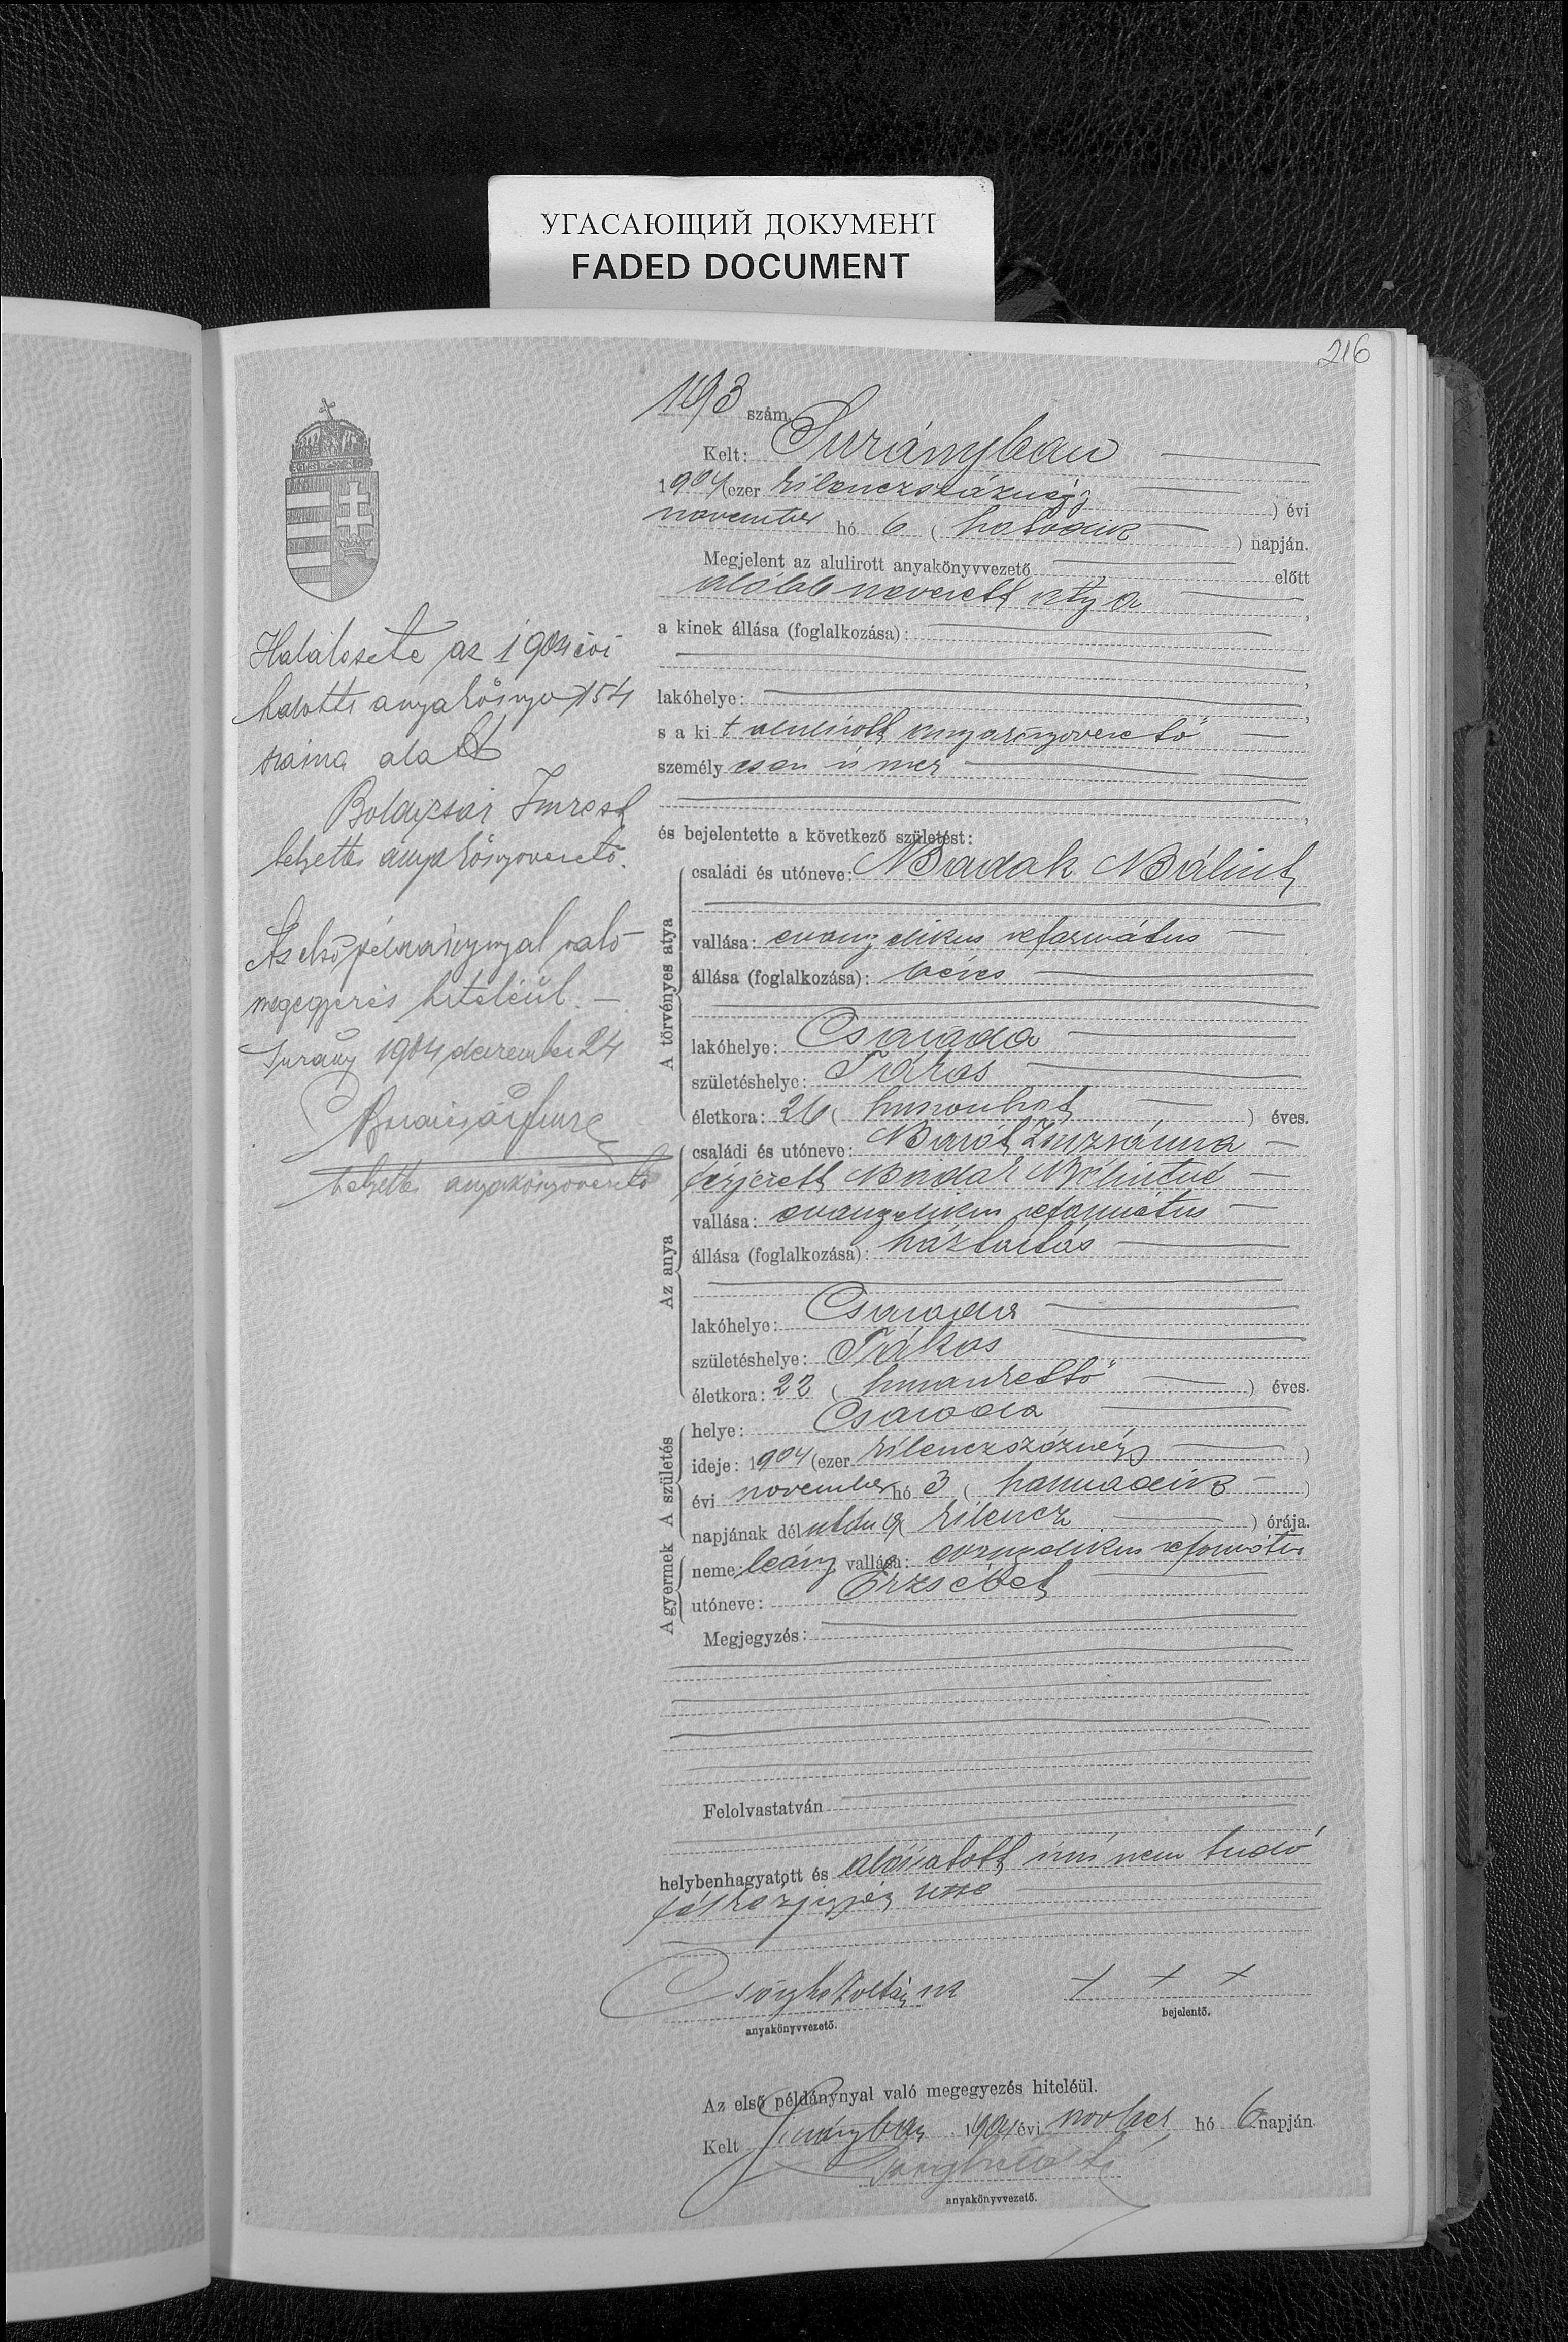 УГАСАЮЩИЙ ДОКУМЕНТ
FADED DOCUMENT
216
193 szám.
Kelt: Surányban
1904 (ezer kilenczszáznégy ) évi
november hó 6 ( hatodik ) napján.
Megjelent az alulirott anyakönyvvezető előtt
alább nevezett atya ,
a kinek állása (foglalkozása):
,
lakóhelye: ,
s a ki t alulirott anyakönyvvezető
személyesen ismer
,
és bejelentette a következő születést:
A törvényes atya
családi és utóneve: Badak Bálint
vallása: evangelikus református
állása (foglalkozása): béres
lakóhelye: Csaroda
születéshelye:
életkora: 26 ( huszonhat ) éves.
Az anya
családi és utóneve: Zsuzsánna
férjezett Badak Bálintné
vallása: evangelikus református
állása (foglalkozása): háztartás
lakóhelye: Csaroda
születéshelye:
életkora: 22 ( huszonkettő ) éves.
A születés
helye: Csaroda
ideje: 1904 (ezer kilenczszáznégy )
évi november hó 3 ( harmadik )
napjának délután 9 ( kilencz ) órája.
A gyermek
neme: leány vallása: evangelikus református
utóneve: Erzsébet
Megjegyzés:
Felolvastatván
helybenhagyatott és aláiratott irni nem tudó
fél kézjegyén
Zoltán
anyakönyvvezető.
+ + +
bejelentő.
Az első példánynyal való megegyezés hiteléül.
Kelt Surányban 1904 évi novber hó 6 napján
anyakönyvvezető.
Halálesete az 1904 évi
halotti anyakönyv 154
száma alatt
Imre st
helyettes anyakönyvvezető.
Az első példánynyal való
megegyezés hiteléül. —
Surány 1904 december 24
Imre
helyettes anyakönyvvezető